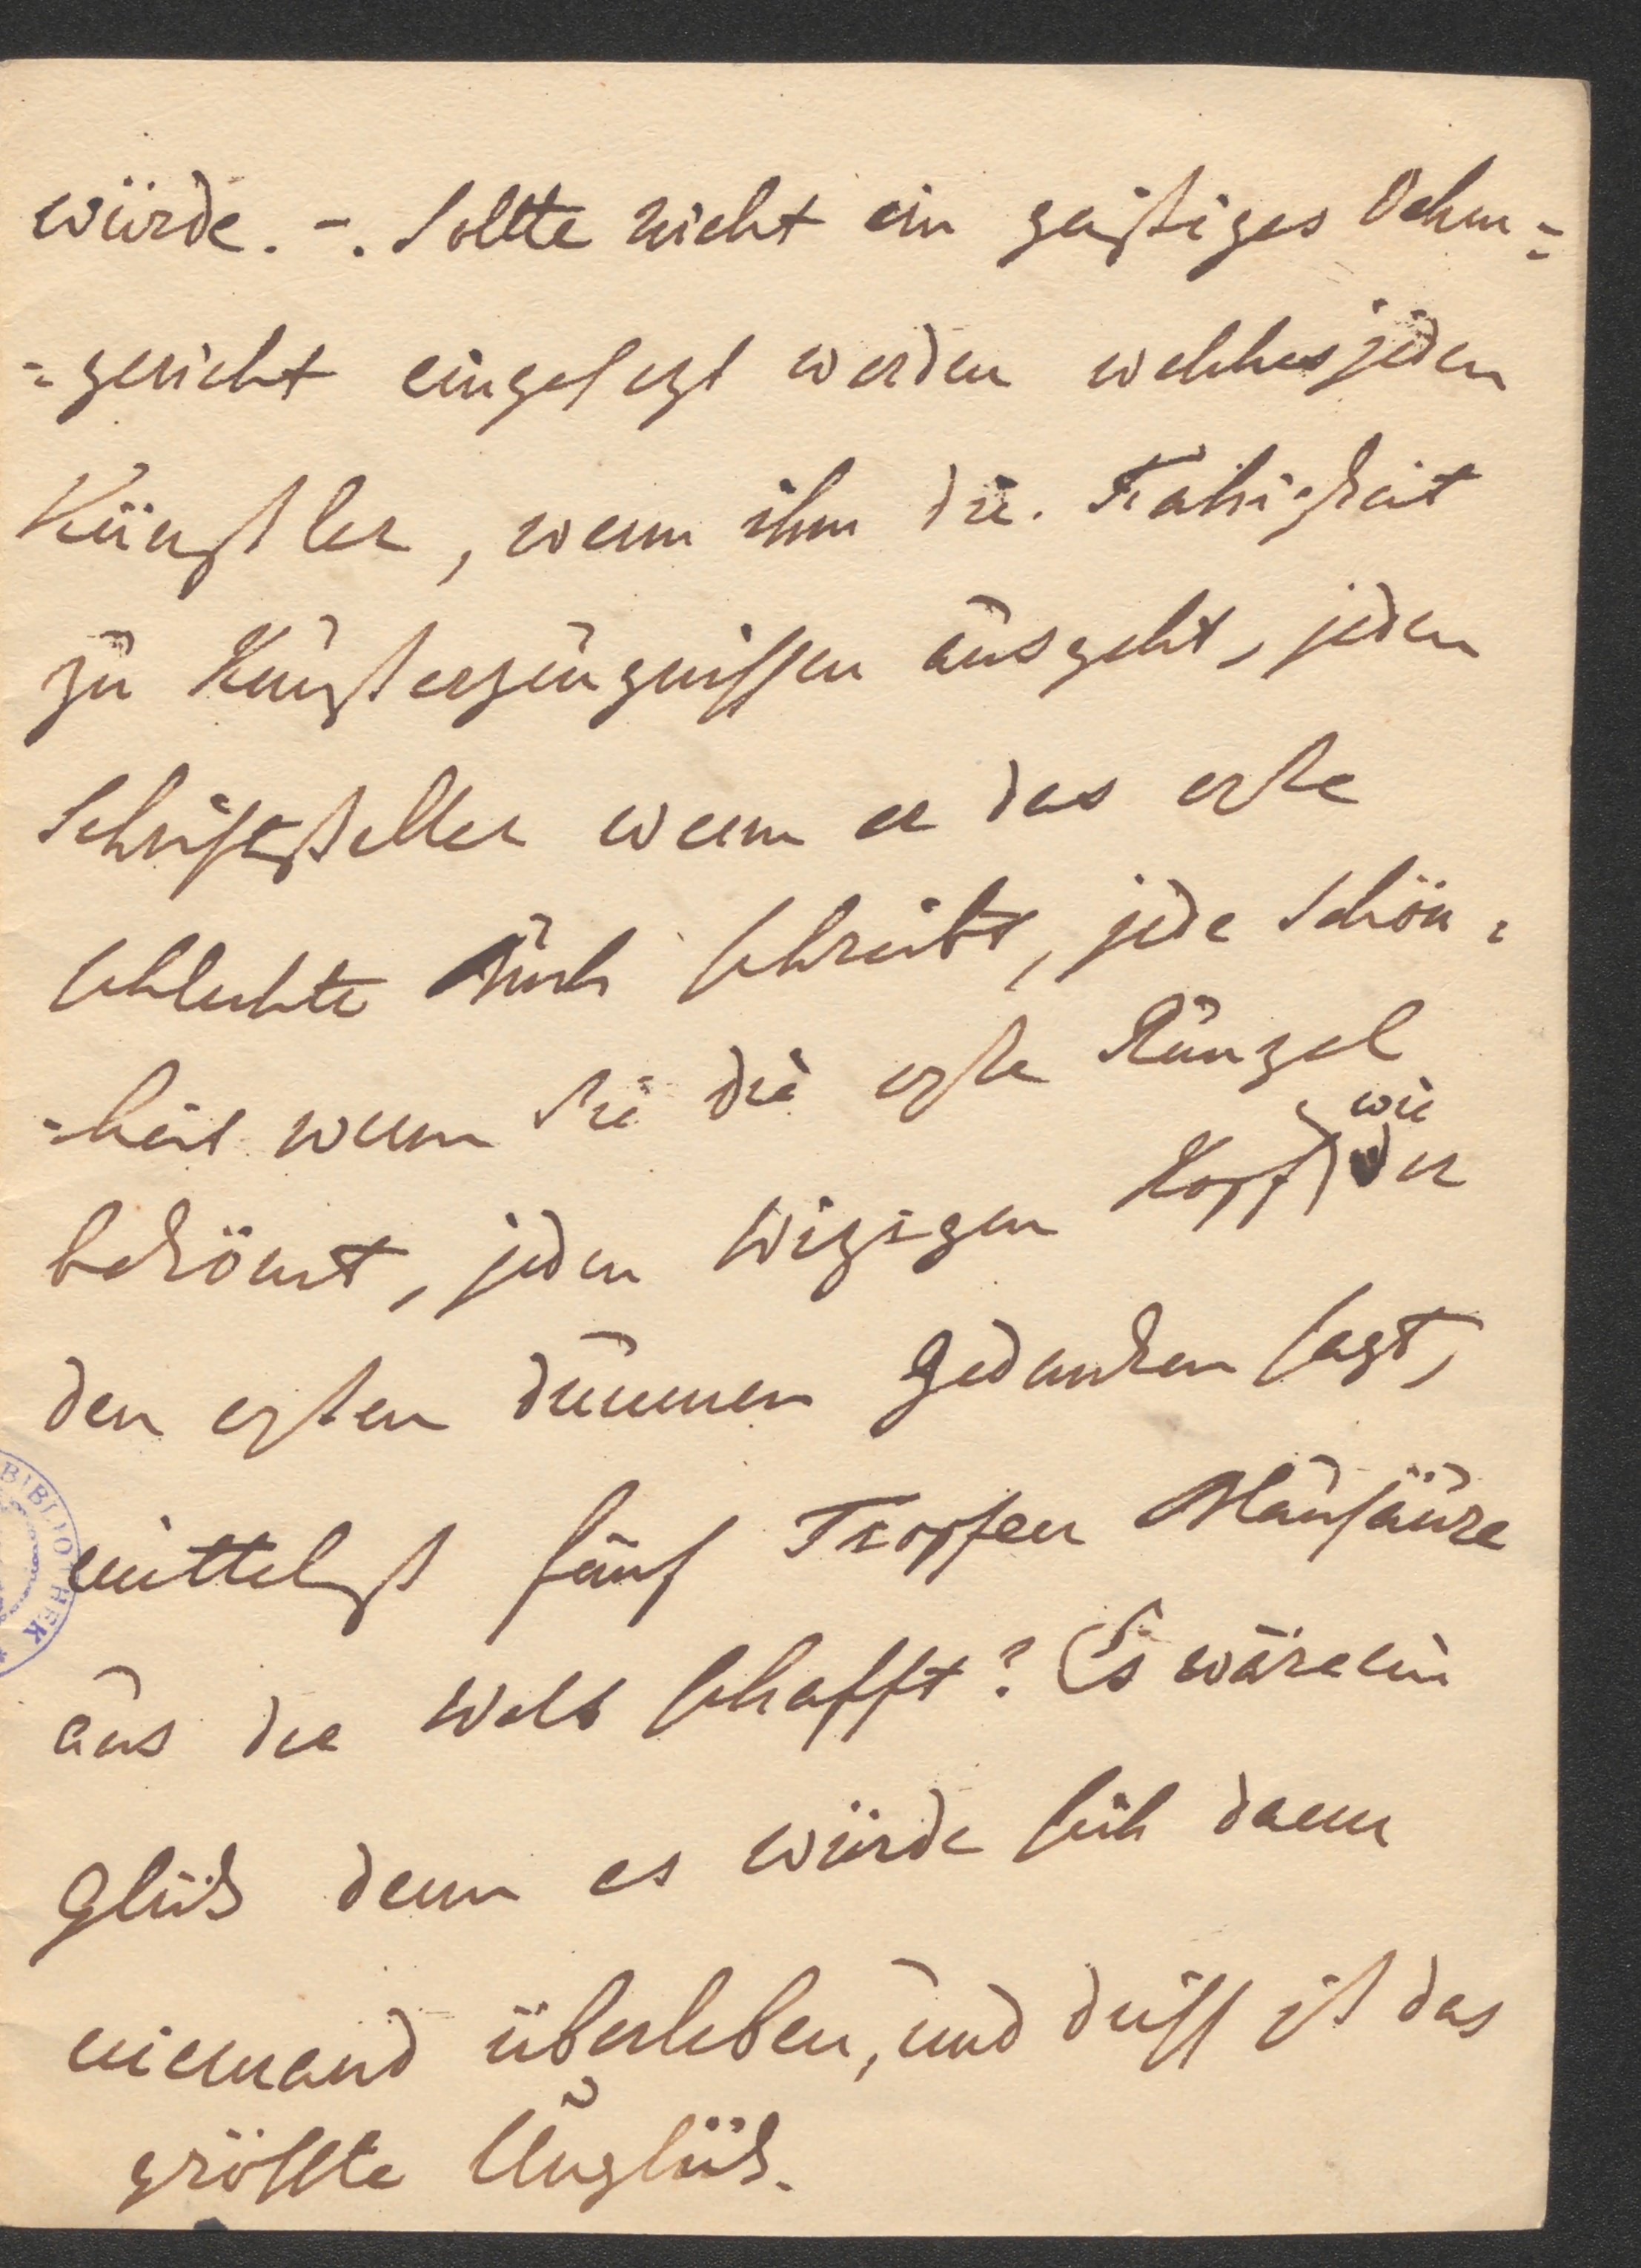 würde. -. Sollte nicht ein geistiges Vehm=
=gericht eingesezt werden welches jeden
Künstler, wenn ihm die Fähigkeit
zu Kunsterzeugnissen ausgeht, jeden
Schriftsteller wenn er das erste
schlechte Buch schreibt, jede Schön=
=heit wenn Sie die erste Runzel
wie
bekömt, jeden wizigen Kopf der
den ersten dummen Gedanken sagt,
mittelst fünf Tropfen Blausäure
aus der Welt schafft? Es wäre ein
Glük denn es würde sich dann
niemand überleben, und diess ist das
grösste Unglük.
BIBLIOTHEK